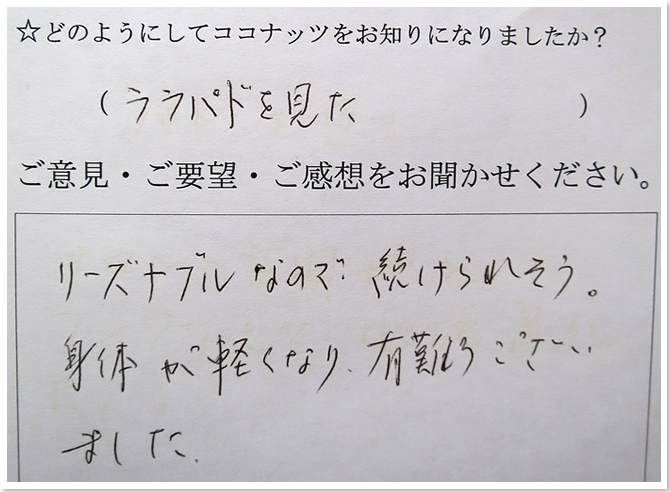 ☆どのようにしてココナッツをお知りになりましたか？
（ララパドを見た）
ご意見・ご要望・ご感想をお聞かせください。
リーズナブルなので続けられそう。
身体が軽くなり、有難うござい
ました。